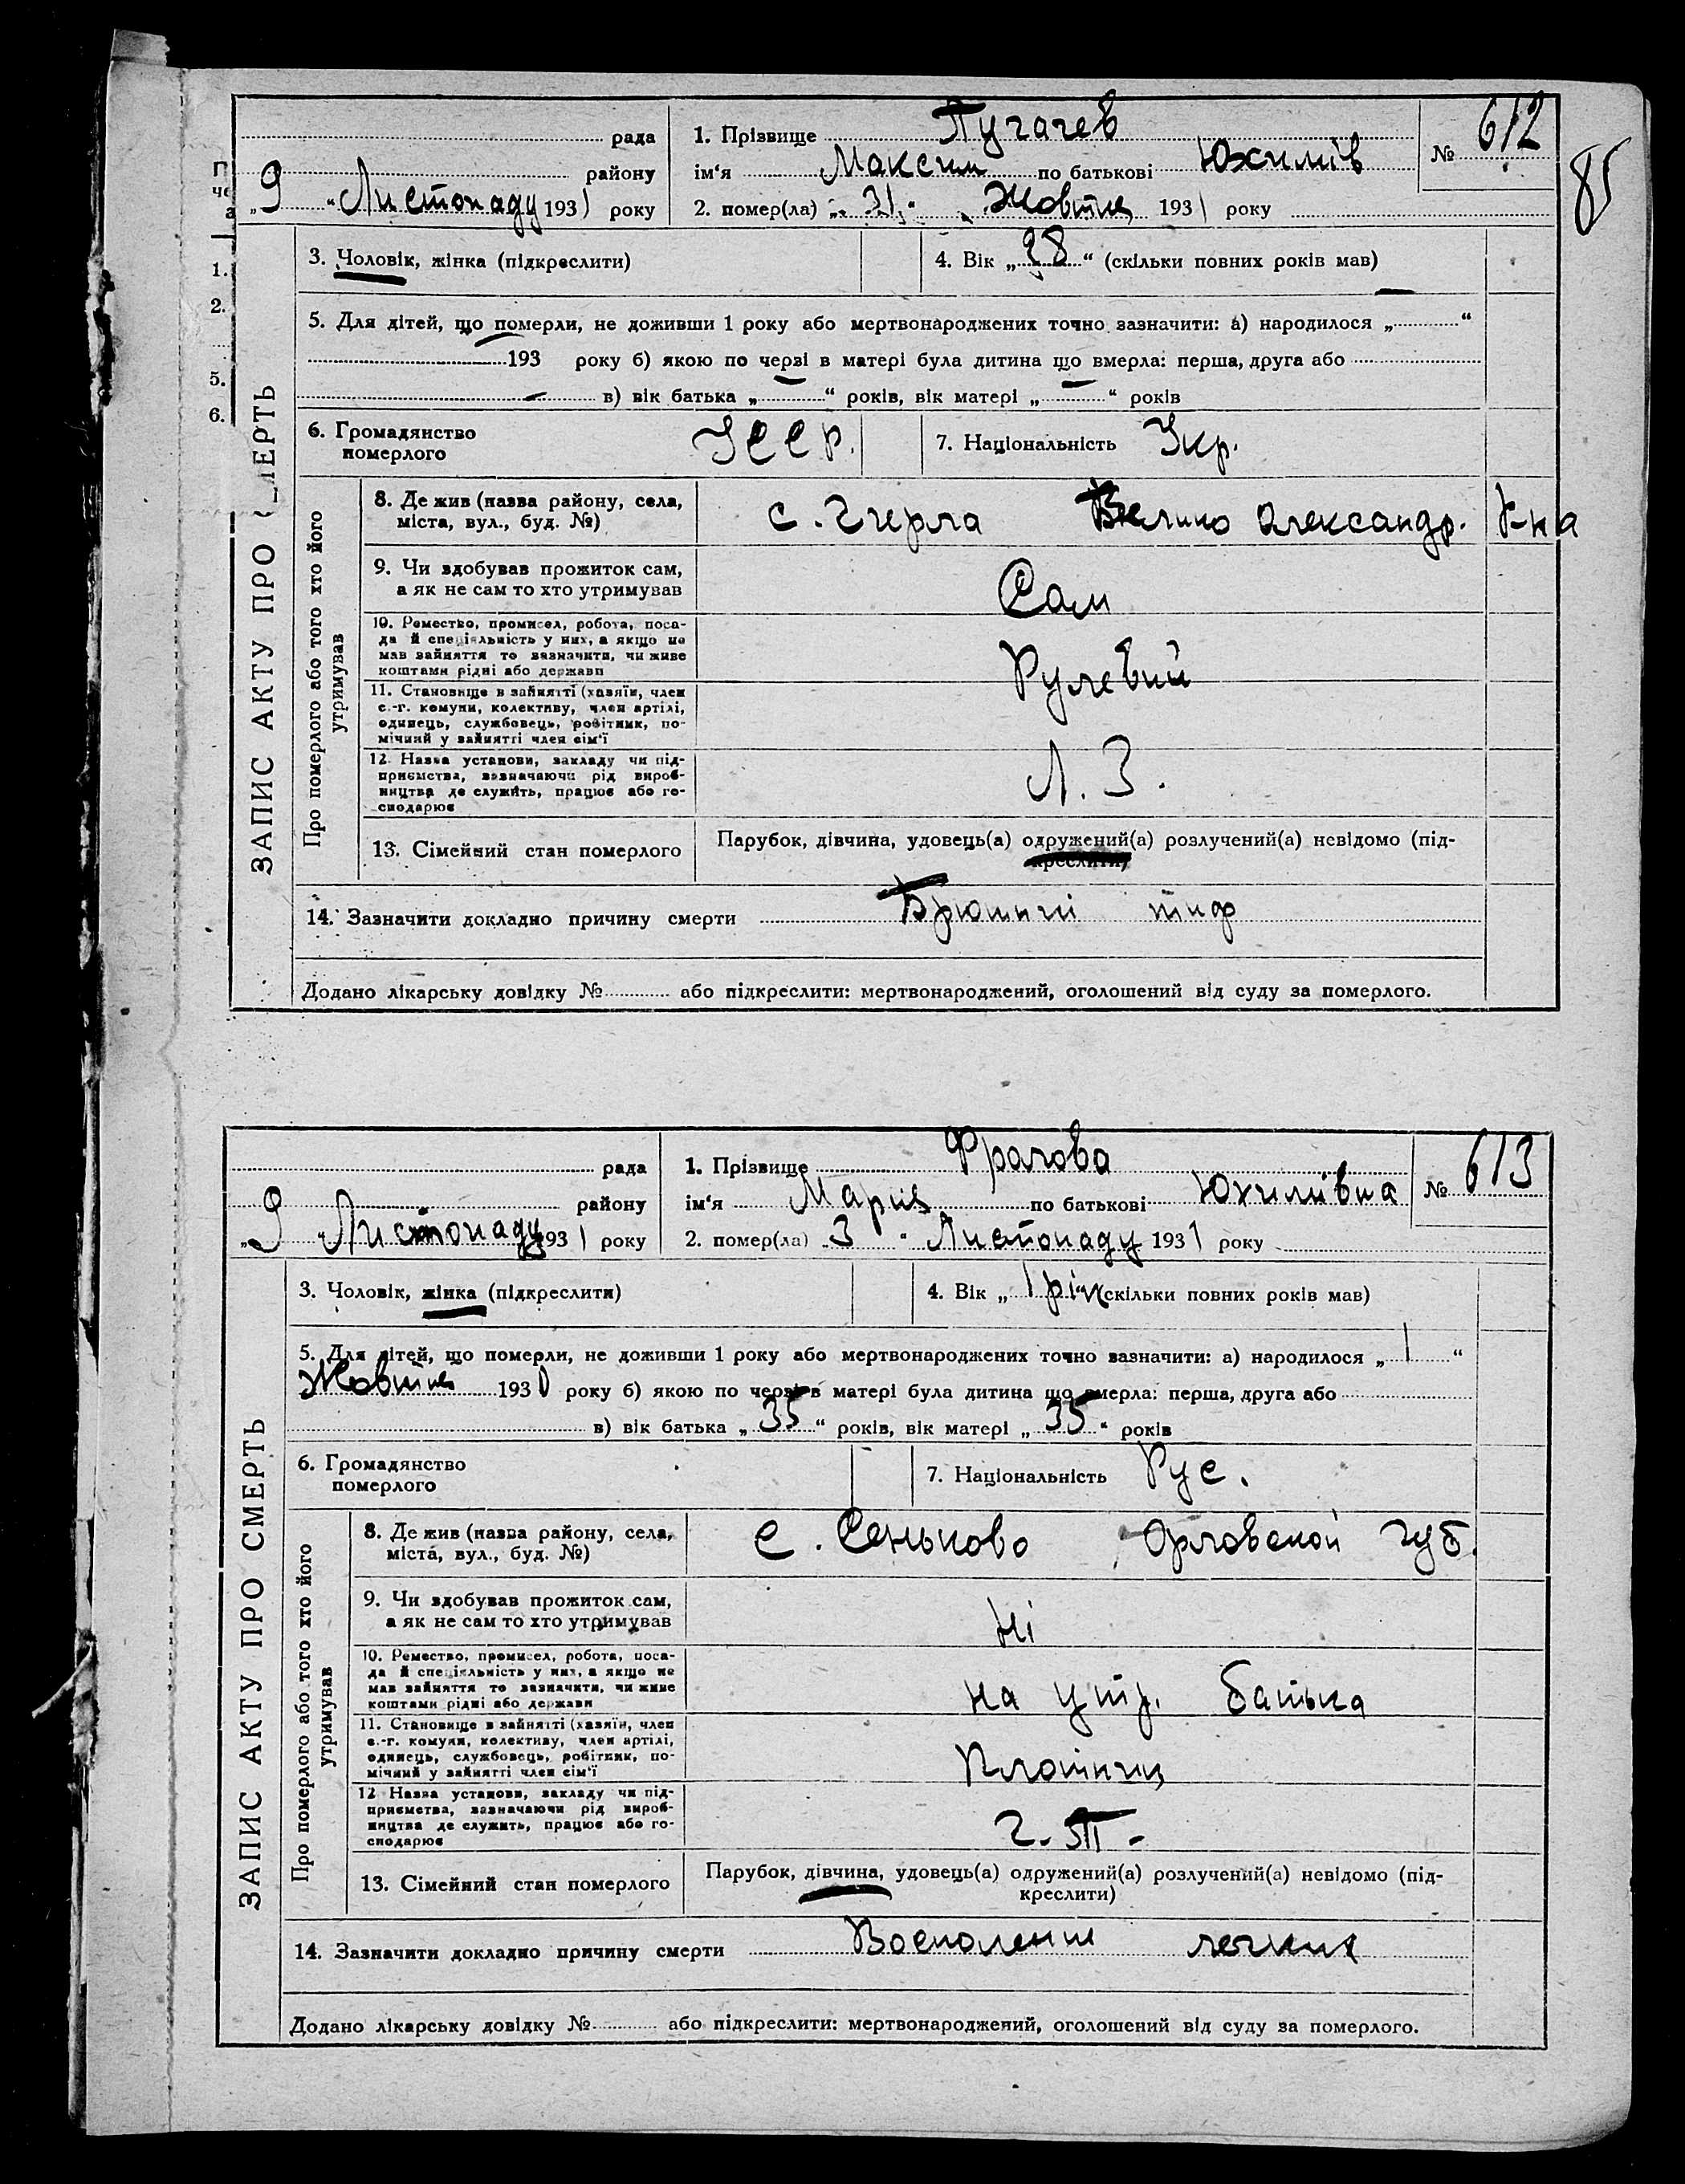 85
рада
району
„9“ Листопаду 1931 року
1. Прізвище Пугачев
ім‘я Максим по батькові Юхимів
2. помер(ла) „31“ Жовтня 1931 року
№ 612
3. Чоловік, жінка (підкреслити)
4. Вік „28“ (скільки повних років мав)
5. Для дітей, що померли, не доживши 1 року або мертвонароджених точно зазначити: а) народилося „ “
193 року б) якою по черзі в матері була дитина що вмерла: перша, друга або
в) вік батька „ “ років, вік матері „ “ років
6. Громадянство
померлого
УССР.
7. Національність Укр.
ЗАПИС АКТУ ПРО
ЕРТЬ
Про померлого або того хто його
утримував
8. Де жив (назва району, села,
міста, вул., буд. №)
с. Велико Александр. р-на
9. Чи здобував прожиток сам,
а як не сам то хто утримував
Сам
10. Ремество, промисел, робота, поса-
да й спеціяльність у них, а якщо не
мав зайняття то зазначити, чи живе
коштами рідні або держави
Рулевий
11. Становище в зайнятті (хазяїн, член
с.-г. комуни, колективу, член артілі,
одинець, службовець, робітник, по-
мічний у зайнятті член сім‘ї
12. Назва установи, закладу чи під-
приємства, зазначаючи рід вироб-
ництва де служить, працює або го-
сподарює
Л. З.
13. Сімейний стан померлого
Парубок, дівчина, удовець(а) одружений(а) розлучений(а) невідомо (під-
креслити)
14. Зазначити докладно причину смерти Брюшний тиф
Додано лікарську довідку № або підкреслити: мертвонароджений, оголошений від суду за померлого.
рада
району
„9“ Листопаду 1931 року
1. Прізвище
ім‘я Мария по батькові Юхимівна
2. помер(ла) „3“ Листопаду 1931 року
№ 613
3. Чоловік, жінка (підкреслити)
4. Вік „1 рік“ (скільки повних років мав)
5. Для дітей, що померли, не доживши 1 року або мертвонароджених точно зазначити: а) народилося „1“
Жовтня 1930 року б) якою по черзі в матері була дитина що вмерла: перша, друга або
в) вік батька „35“ років, вік матері „35“ років
6. Громадянство
померлого
7. Національність Рус.
ЗАПИС АКТУ ПРО СМЕРТЬ
Про померлого або того хто його
утримував
8. Де жив (назва району, села,
міста, вул., буд. №)
с. Сеньково Орловской губ.
9. Чи здобував прожиток сам,
а як не сам то хто утримував
Ні
10. Ремество, промисел, робота, поса-
да й спеціяльність у них, а якщо не
мав зайняття то зазначити, чи живе
коштами рідні або держави
на утр. батька
11. Становище в зайнятті (хазяїн, член
с.-г. комуни, колективу, член артілі,
одинець, службовець, робітник, по-
мічний у зайнятті член сім‘ї
12 Назва установи, закладу чи під-
приємства, зазначаючи рід вироб-
ництва де служить, працює або го-
сподарює
13. Сімейний стан померлого
Парубок, дівчина, удовець(а) одружений(а) розлучений(а) невідомо (під-
креслити)
14. Зазначити докладно причину смерти Воспаление легких
Додано лікарську довідку № або підкреслити: мертвонароджений, оголошений від суду за померлого.